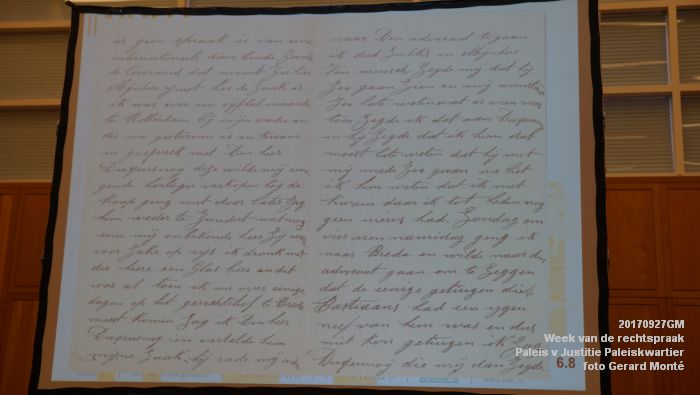 er geen spraak is van eene
internationale dieve bende Zooals
de Overand dat noemt Zie hier
Mijnheer hoe de Zaak is
ik was over een vijftal maande
te Rotterdam bij mijn vader en
die nu gestorven is en kwam
in gesprek met Den heer
Duquesnoij deze wilde mij een
goude horlogie verkopen tog de
koop ging niet door later Zag
hem weder te Zundert met nog
eene mij onbekende heer Zij
voor Zake op rijs ik dronk met
die heere een Glas bier en dit
was al toen ik nu over eenige
dagen op het gerechtshof te Breda
moest komen Zag ik Den heer
Duquesnoij en vertelde hem
mijne Zaak hij rade mij aan
naar Den advocaat te gaan
ik deed Zulks en Mijnheer
Van mensch Zegde mij dat hij
Zoo gaan Zien en mij
Zoo late wat er van was
toen Zegde ik dat aan Duquesnoij
en hij Zegde dat ik hem dat
moest late weten dat hij met
mij mede Zoo gaan nu liet
ik hem weten dat ik niet
kwam daar ik tot heden nog
geen nieuws had Zondag om
vier uren namiddag ging ik
naar Breda en wilde naar den
advocaat gaan om te Zeggen
dat de eenige getuigen die
Bastiaans had een eigen
neef van hem was en dus
niet kon getuigen ik Zag
Duquesnoij die mij dan Zegde
6.8
20170927GM
Week van de rechtspraak
Paleis v Justitie Paleiskwartier
foto Gerard Monté